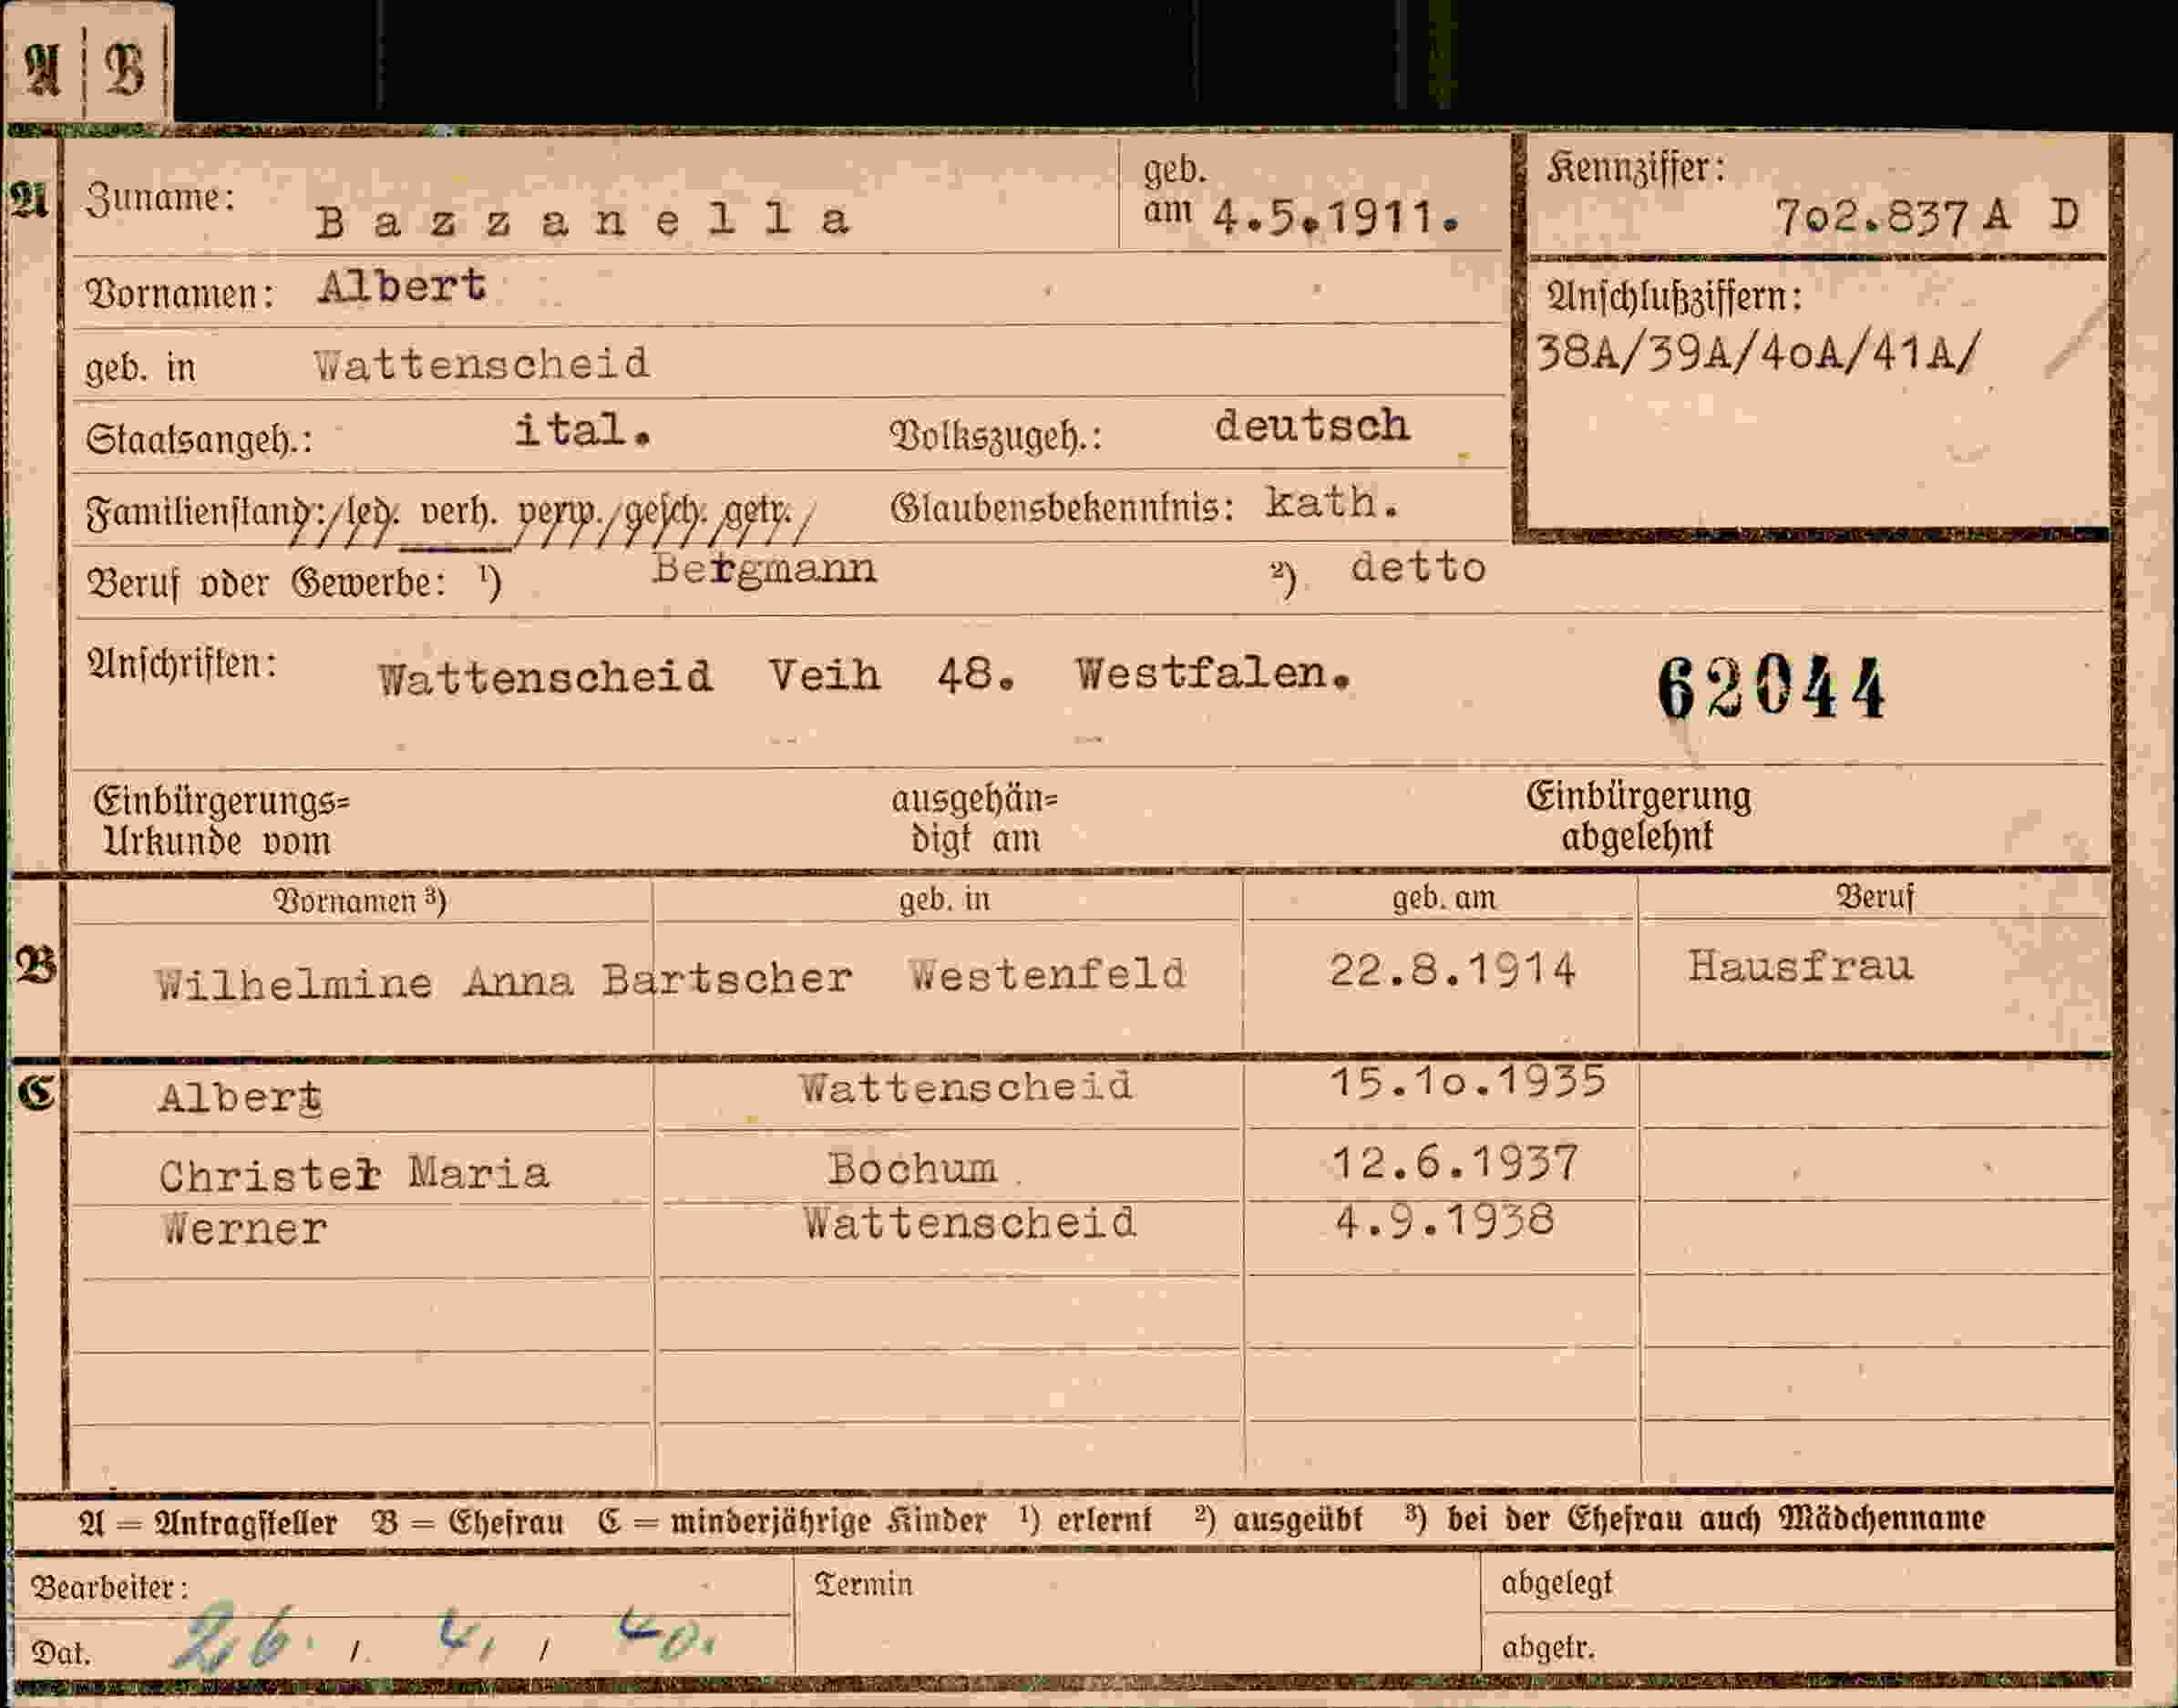 A | B
A Zuname: Bazzanella geb. am 4.5.1911. Kennziffer: 702.837 A D
Vornamen: Albert Anschlußziffern:
geb. in Wattenscheid 38A/39A/40A/41A/
Staatsangeh.: ital. Volkszugeh.: deutsch
Familienstand: led. verh. verw. gesch. getr. Glaubensbekenntnis: kath.
Beruf oder Gewerbe: ¹) Bergmann ²) detto
Anschriften: Wattenscheid Veih 48. Westfalen. 62044
Einbürgerungs= ausgehän= Einbürgerung
Urkunde vom digt am abgelehnt
Vornamen ³) geb. in geb. am Beruf
B Wilhelmine Anna Bartscher Westenfeld 22.8.1914 Hausfrau
C Albert Wattenscheid 15.10.1935
Christel Maria Bochum 12.6.1937
Werner Wattenscheid 4.9.1938
A = Antragsteller B = Ehefrau C = minderjährige Kinder ¹) erlernt ²) ausgeübt ³) bei der Ehefrau auch Mädchenname
Bearbeiter: Termin abgelegt
Dat. 26. / 4. / 40. abgetr.